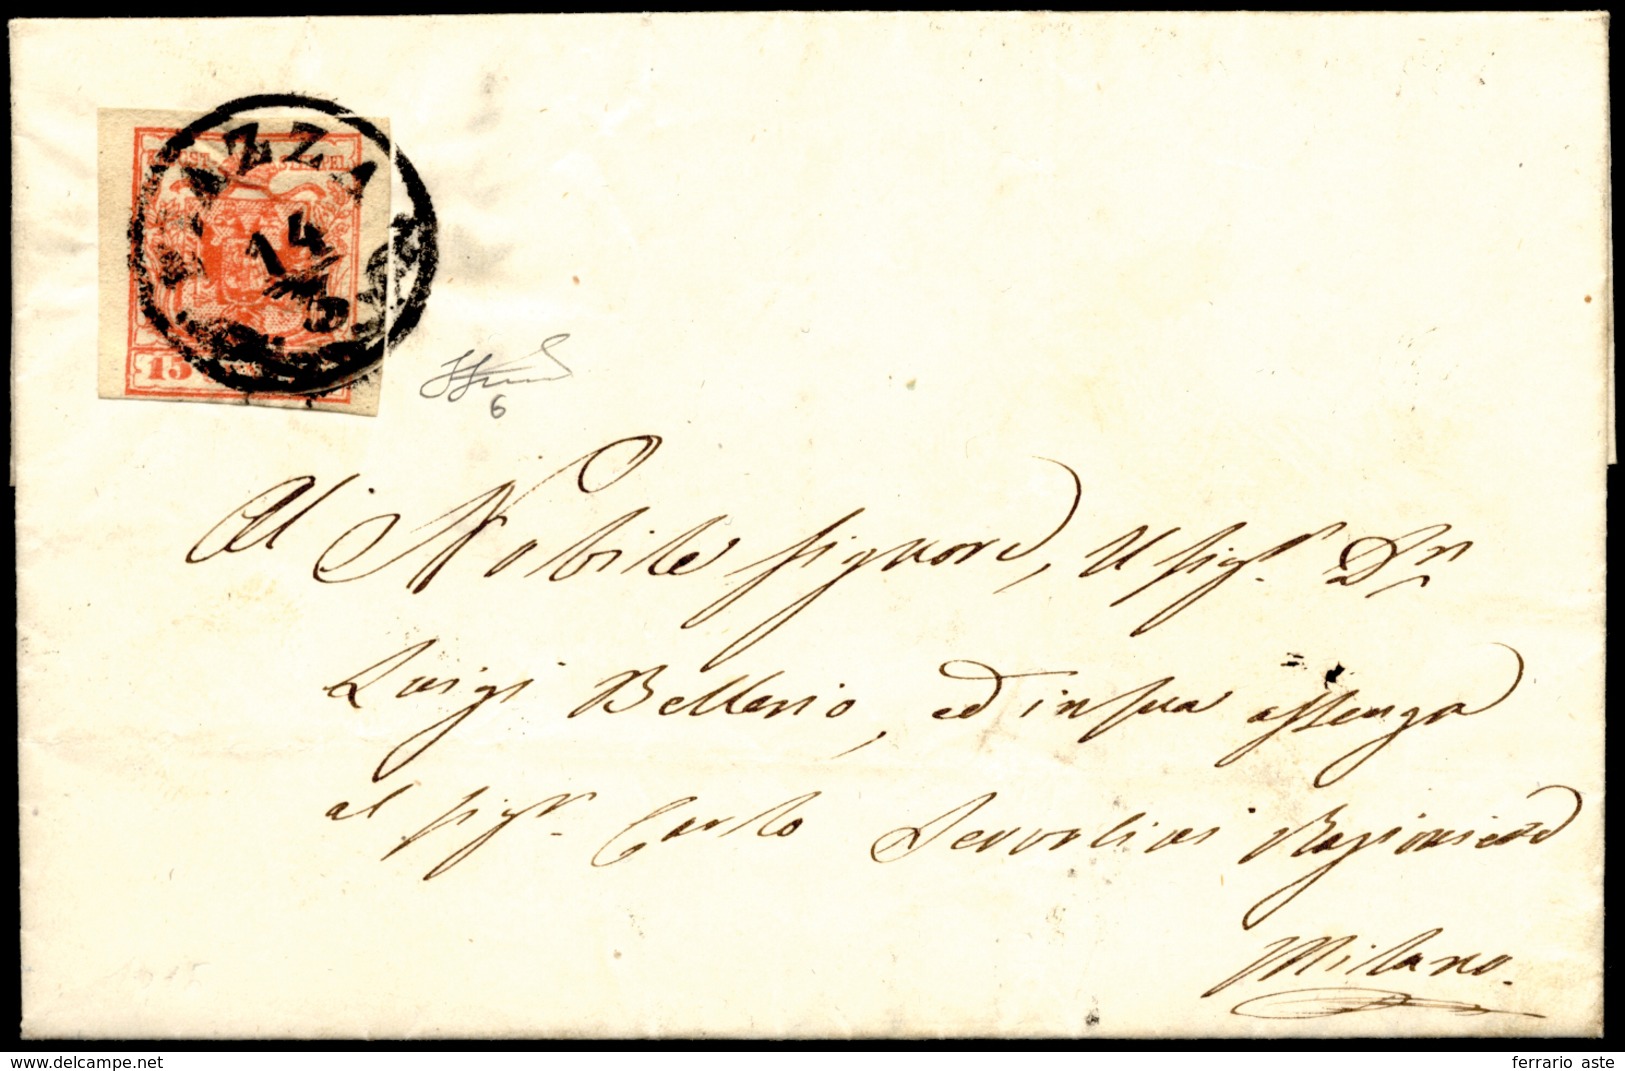 PIAZZA
14
15
6
Al Nobile signore, il sigr. Dn
Luigi Bellerio, ed in sua assenza
al sigr. Carlo Ragioniere
Milano.
delcampe.net
ferrario aste